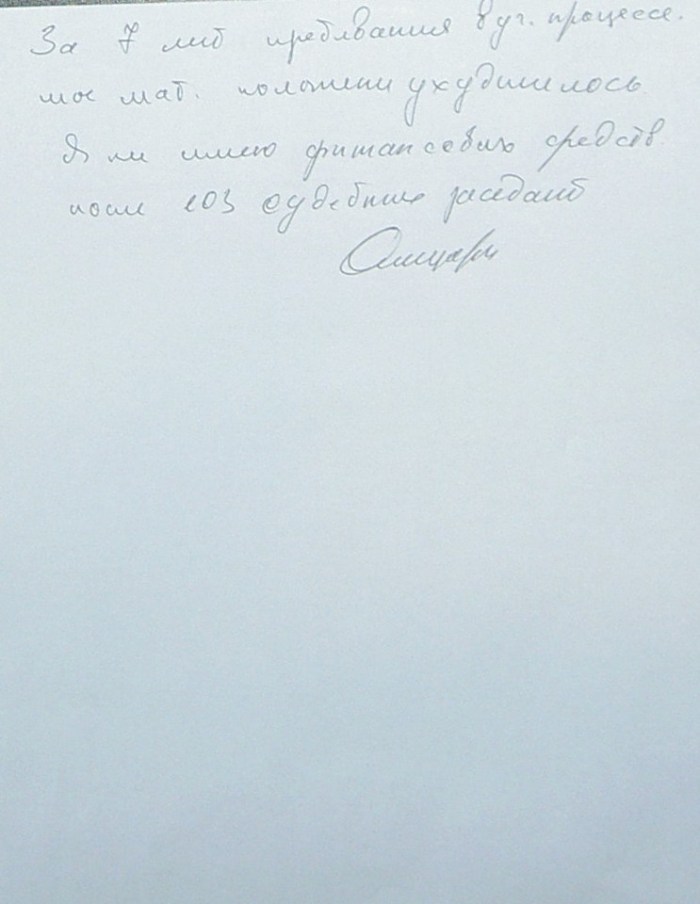 За 7 лет пребывания в уг. процессе.
мое мат. положени ухудшилось
Я не имею финансових средств
после 103 судебних заседаний